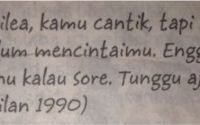 ilea, kamu cantik, tapi
um mencintaimu. Engg
u kalau sore. Tunggu aj
ilan 1990)